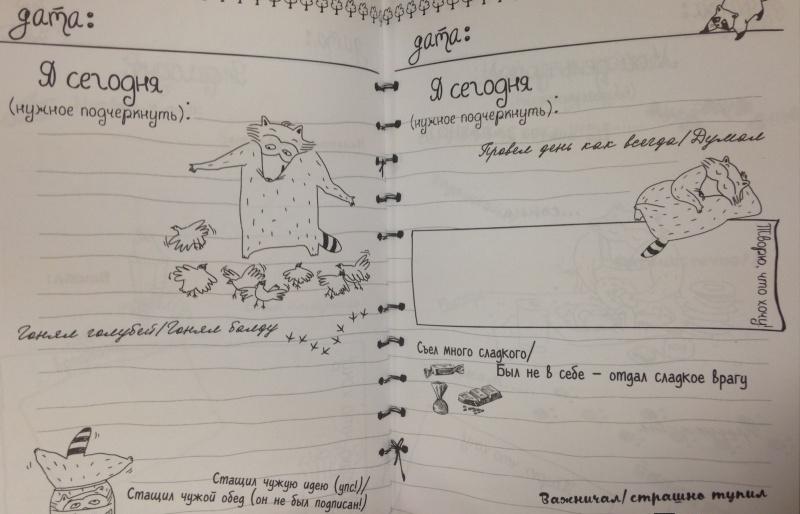 дата:
Я сегодня
(нужное подчеркнуть):
Гонял голубей/Гонял балду
Стащил чужую идею (упс!)/
Стащил чужой обед (он не был подписан!)
дата:
Я сегодня
(нужное подчеркнуть):
Провел день как всегда/Думал
Творю, что хочу
Съел много сладкого/
Был не в себе – отдал сладкое врагу
Важничал/страшно тупил